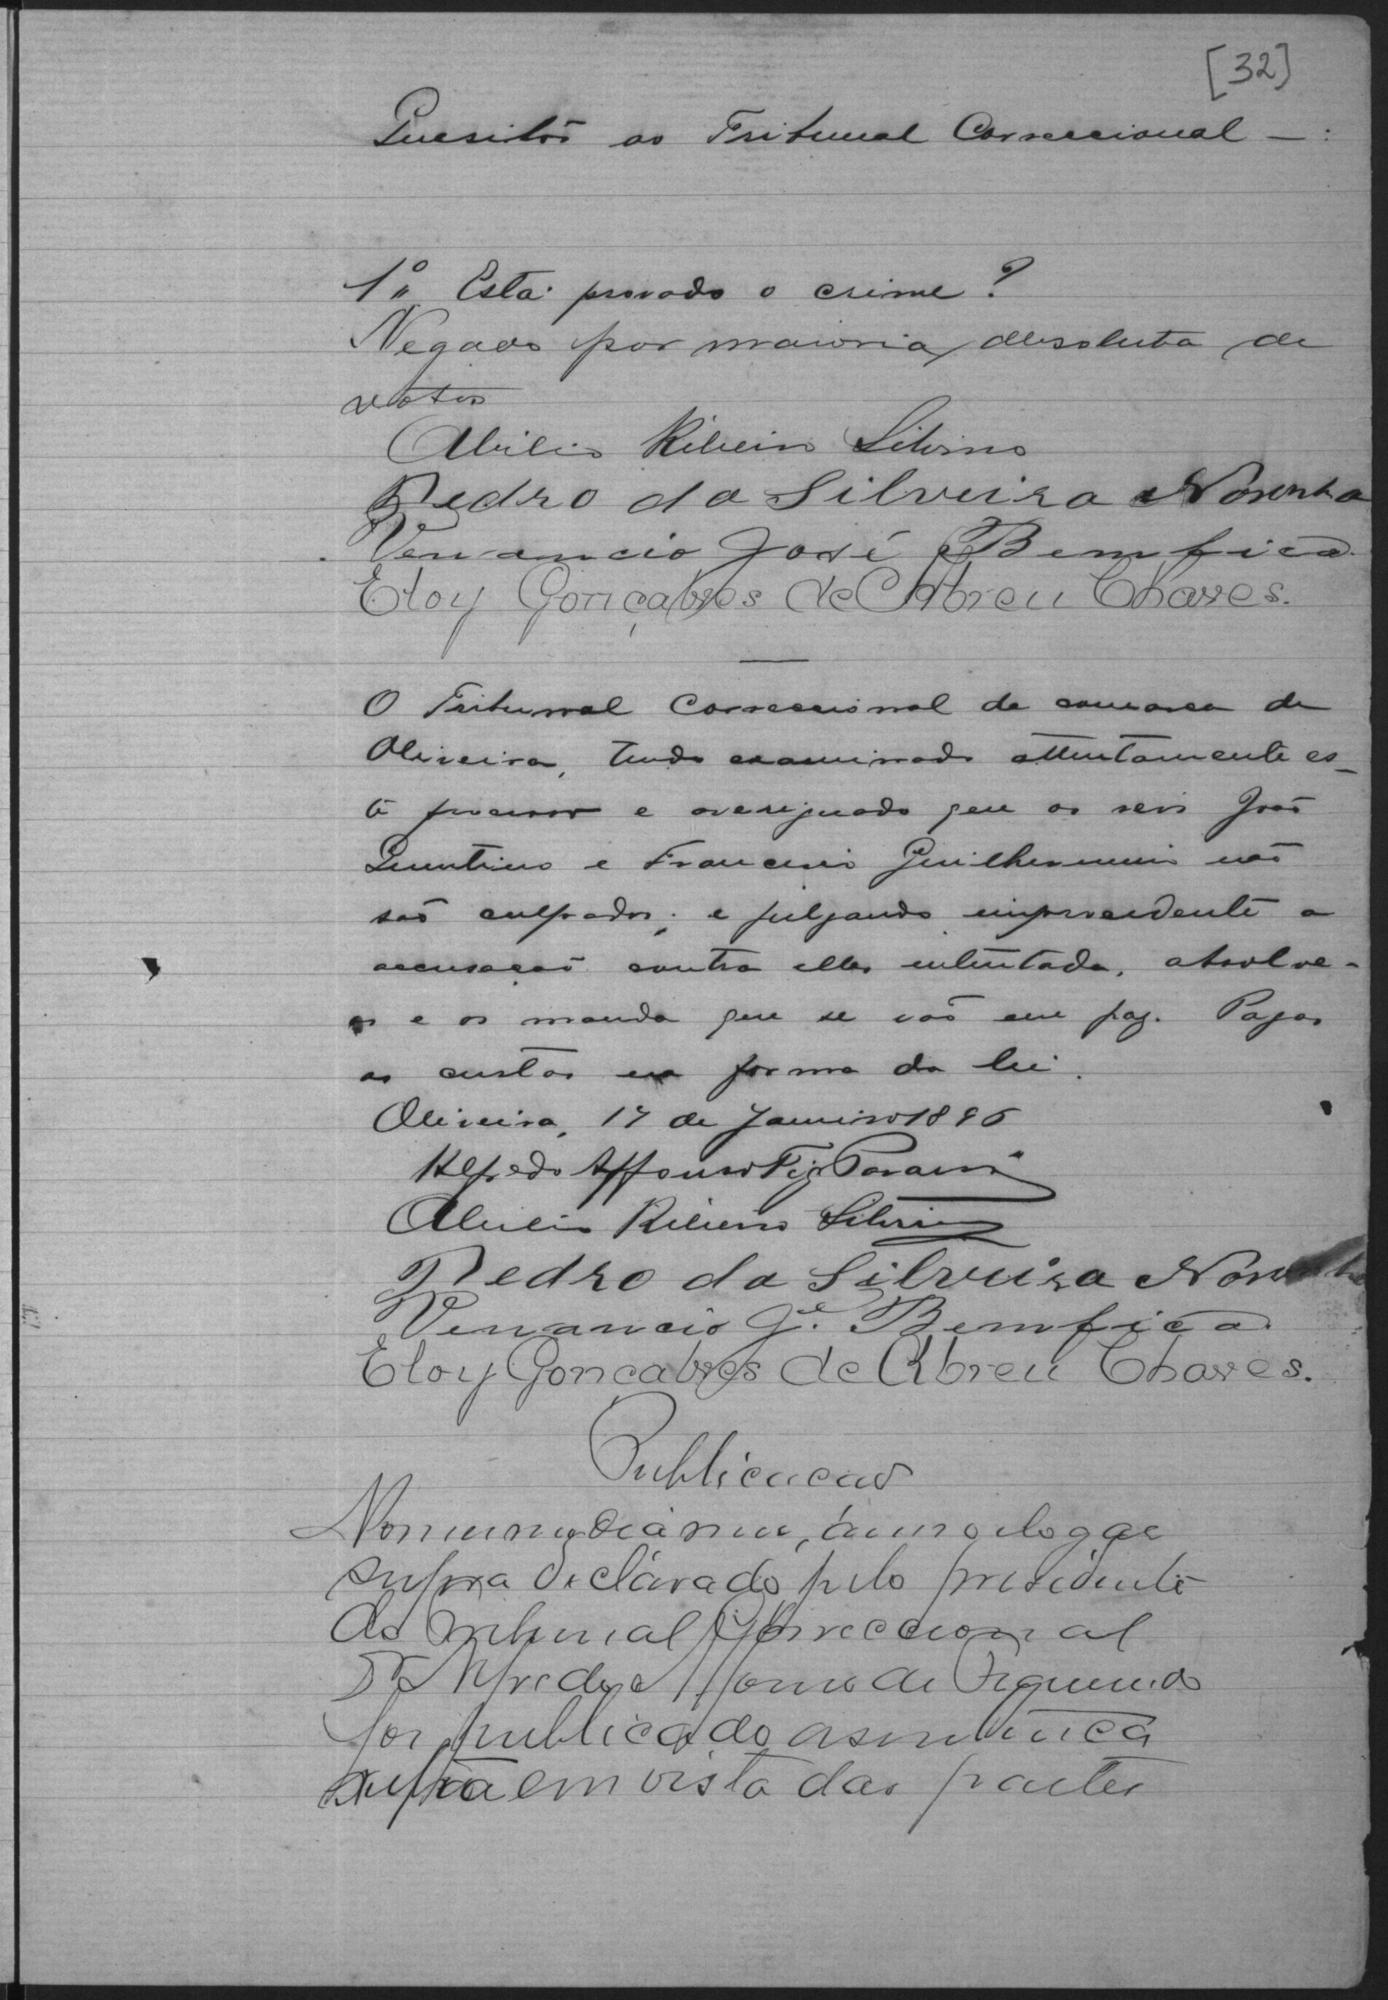 [32]
Quesitos ao Tribunal Correccional — :
1º Está provado o crime?
Negado por maioria absoluta de
votos
Abilio Ribeiro Silvino
Pedro da Silveira Noronha
Venancio José Bemfica.
Eloy Gonçalves de Abreu Chaves.
O Tribunal Correccional da comarca de
Oliveira, tendo examinado attentamente es-
te processo e averiguado que os reos João
Quintino e Francisco Guilhermino não
são culpados; e julgando improcedente a
accusação contra elles intentada, absolve-
os e os manda que se vão em paz. Pagas
as custas na forma da lei.
Oliveira, 17 de Janeiro 1896
Alfredo Affonso
Abilio Ribeiro Silvino
Pedro da Silveira Noronha
Venancio Jé. Bemfica.
Eloy Gonçalves de Abreu Chaves.
Publicacao
No mesmo dia mez, anno e logar
supra declarado pelo presidente
do Tribunal Correccional
Dr Alfredo Affonso de Figueiredo
foi publicado a sentença
supra em vista das partes